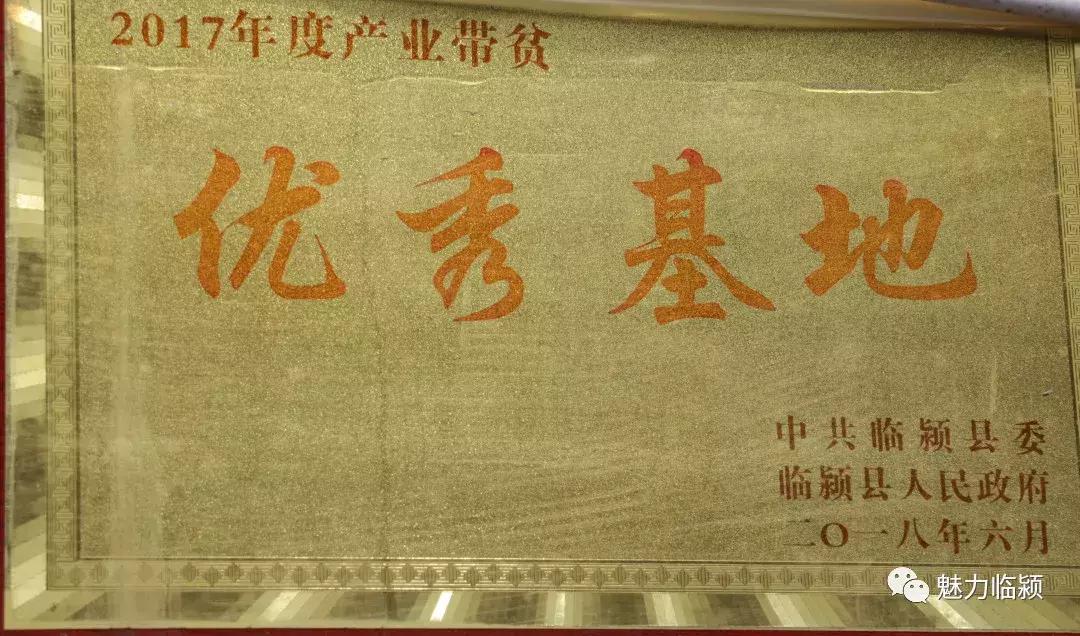 2017年度产业带贫
优秀基地
中共临颍县委
临颍县人民政府
二〇一八年六月
魅力临颍